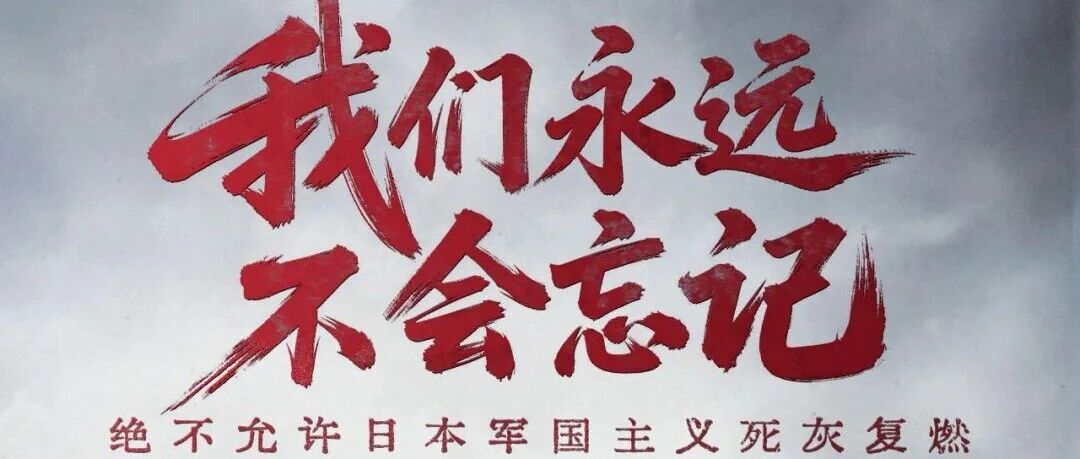 我们永远
不会忘记
绝不允许日本军国主义死灰复燃